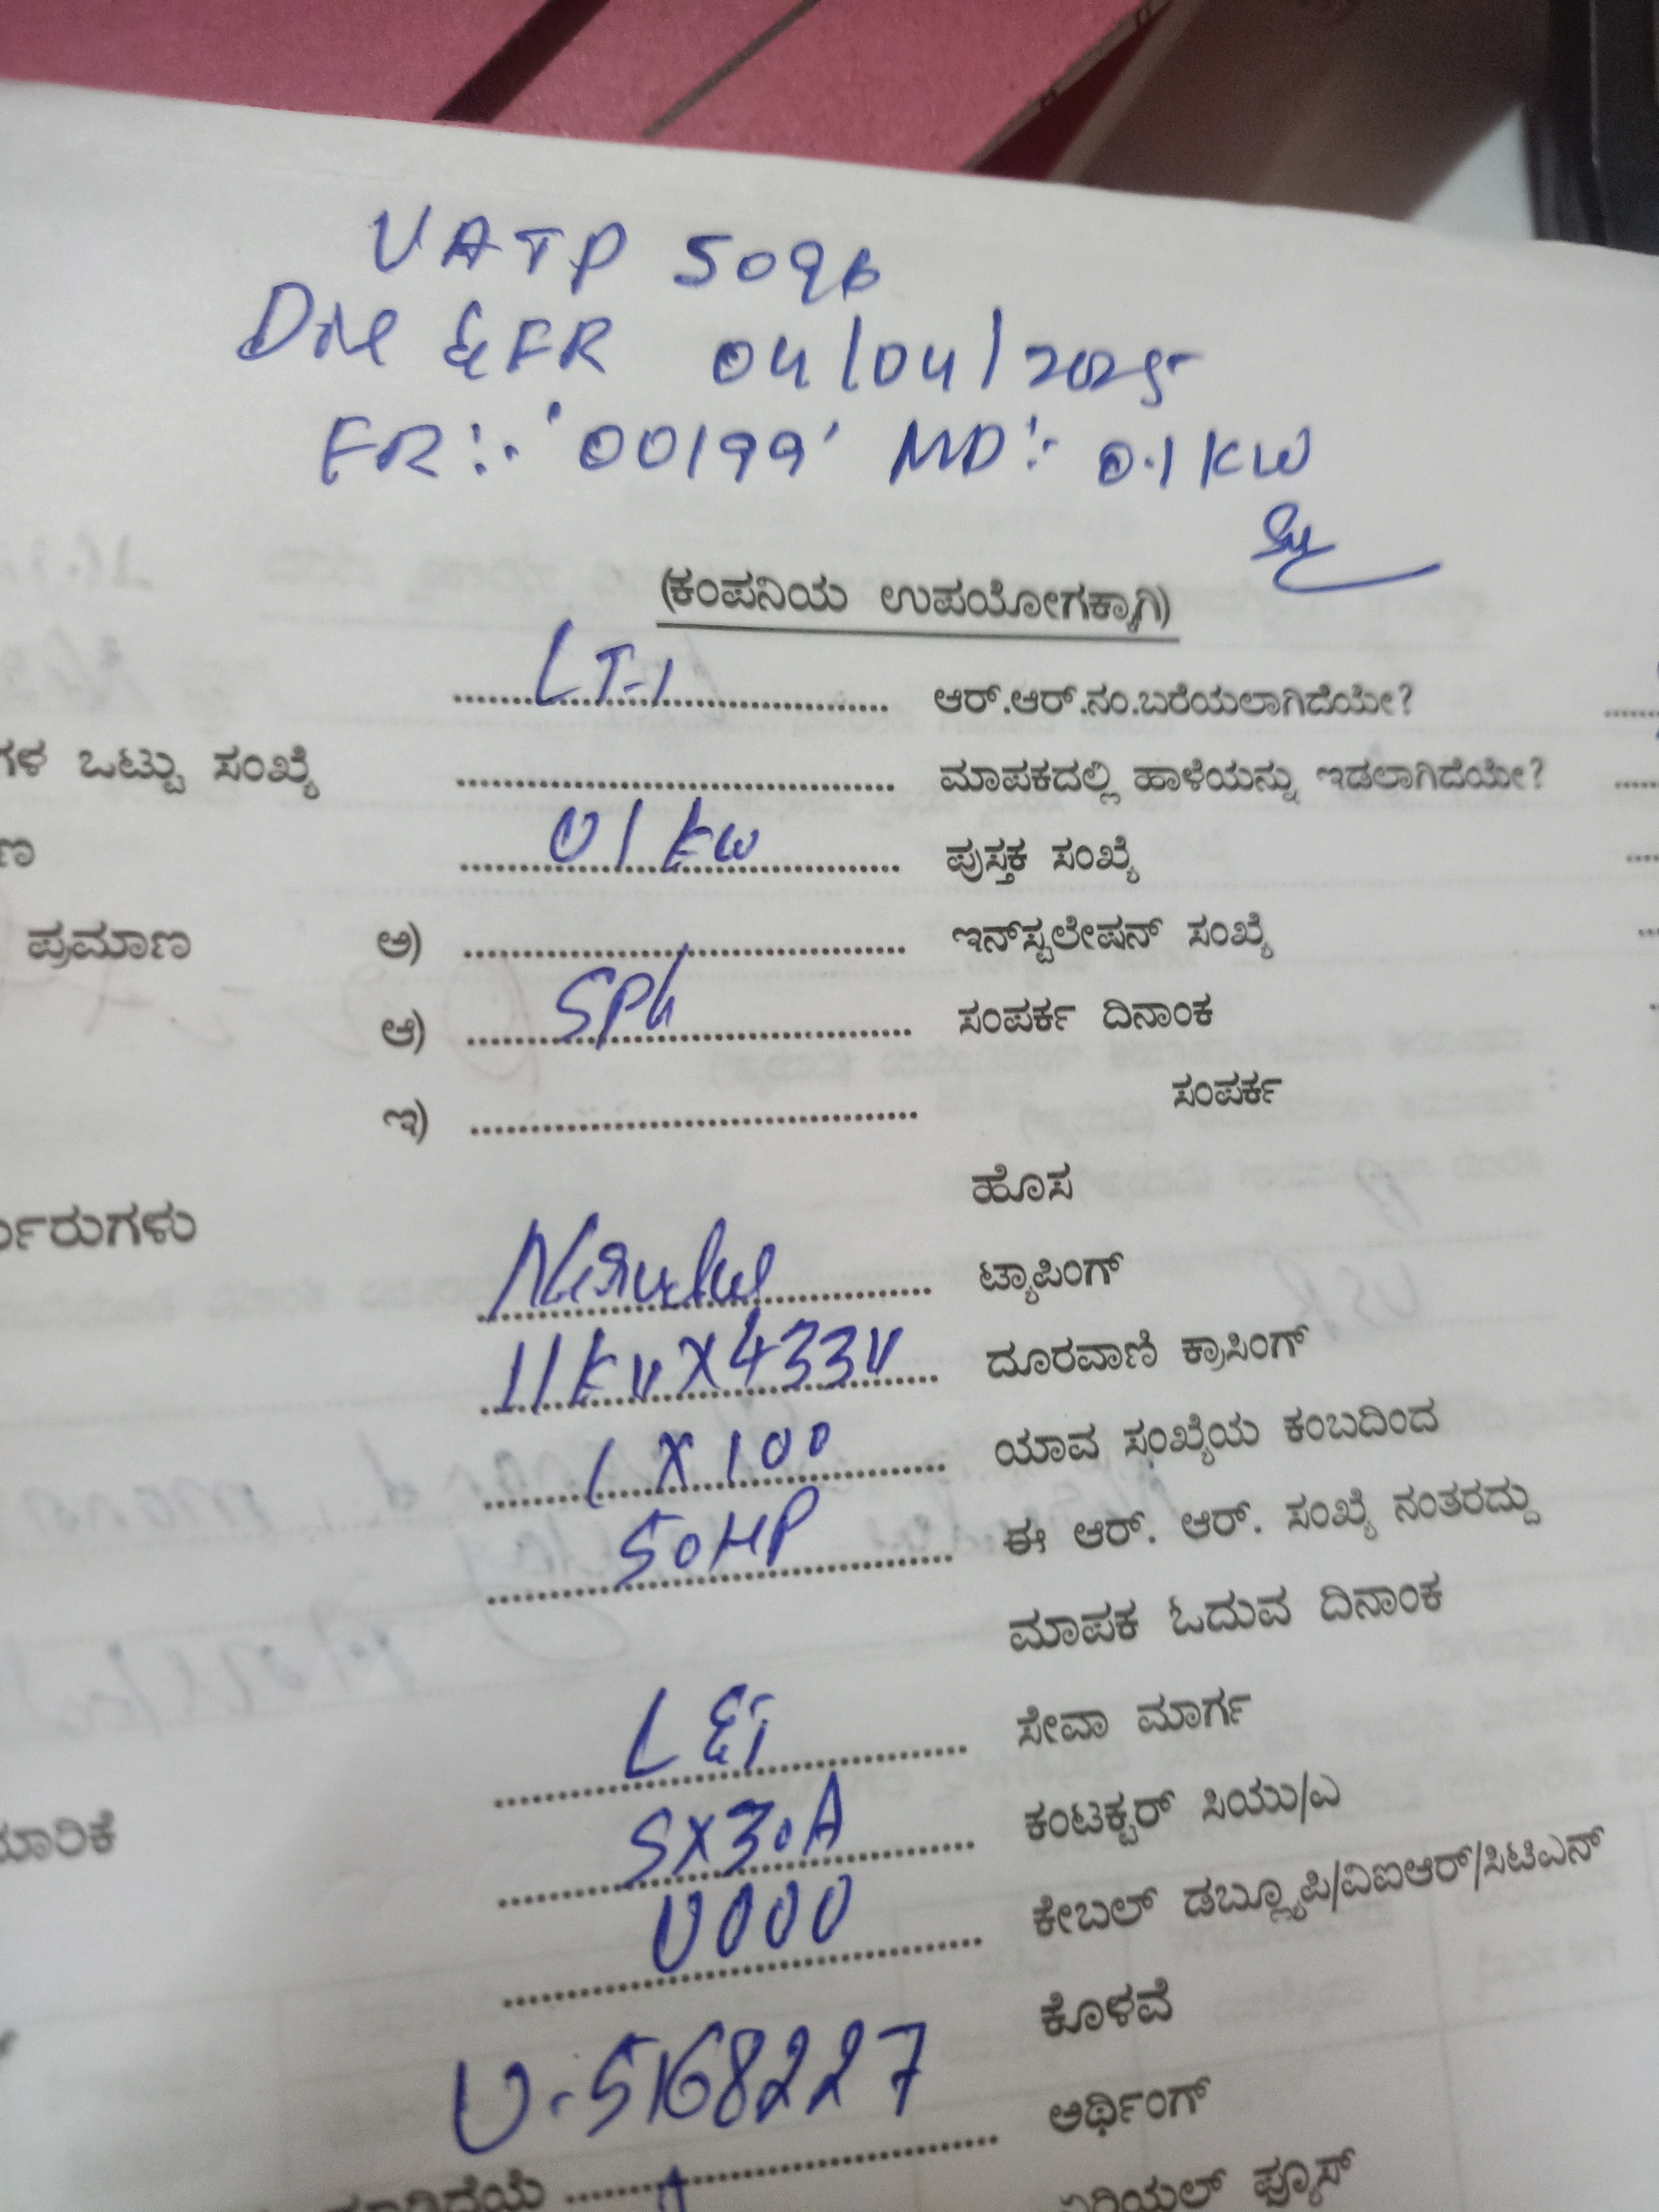 VATP 5096
& FR 04/04/2025
FR:- '00199' MD:- 0.1KW
(ಕಂಪನಿಯ ಉಪಯೋಗಕ್ಕಾಗಿ)
LT-1 ಆರ್.ಆರ್.ನಂ.ಬರೆಯಲಾಗಿದೆಯೇ?
ಗಳ ಒಟ್ಟು ಸಂಖ್ಯೆ ಮಾಪಕದಲ್ಲಿ ಹಾಳೆಯನ್ನು ಇಡಲಾಗಿದೆಯೇ?
ಣ 01 KW ಪುಸ್ತಕ ಸಂಖ್ಯೆ
ಪ್ರಮಾಣ ಅ) ಇನ್‌ಸ್ಟಲೇಷನ್ ಸಂಖ್ಯೆ
ಆ) SPh ಸಂಪರ್ಕ ದಿನಾಂಕ
ಇ) ಸಂಪರ್ಕ
ಹೊಸ
ರುಗಳು ಟ್ಯಾಪಿಂಗ್
11KVX433V ದೂರವಾಣಿ ಕ್ರಾಸಿಂಗ್
1X100 ಯಾವ ಸಂಖ್ಯೆಯ ಕಂಬದಿಂದ
50HP ಈ ಆರ್. ಆರ್. ಸಂಖ್ಯೆ ನಂತರದ್ದು
ಮಾಪಕ ಓದುವ ದಿನಾಂಕ
L&T ಸೇವಾ ಮಾರ್ಗ
ಯಾರಿಕೆ 5X30A ಕಂಟಕ್ಟರ್ ಸಿಯು/ಎ
0000 ಕೇಬಲ್ ಡಬ್ಲ್ಯೂಪಿ/ವಿಐಆರ್/ಸಿಟಿಎನ್
ಕೊಳವೆ
U-5168227 ಅರ್ಥಿಂಗ್
ಏರಿಯಲ್ ಫ್ಯೂಸ್